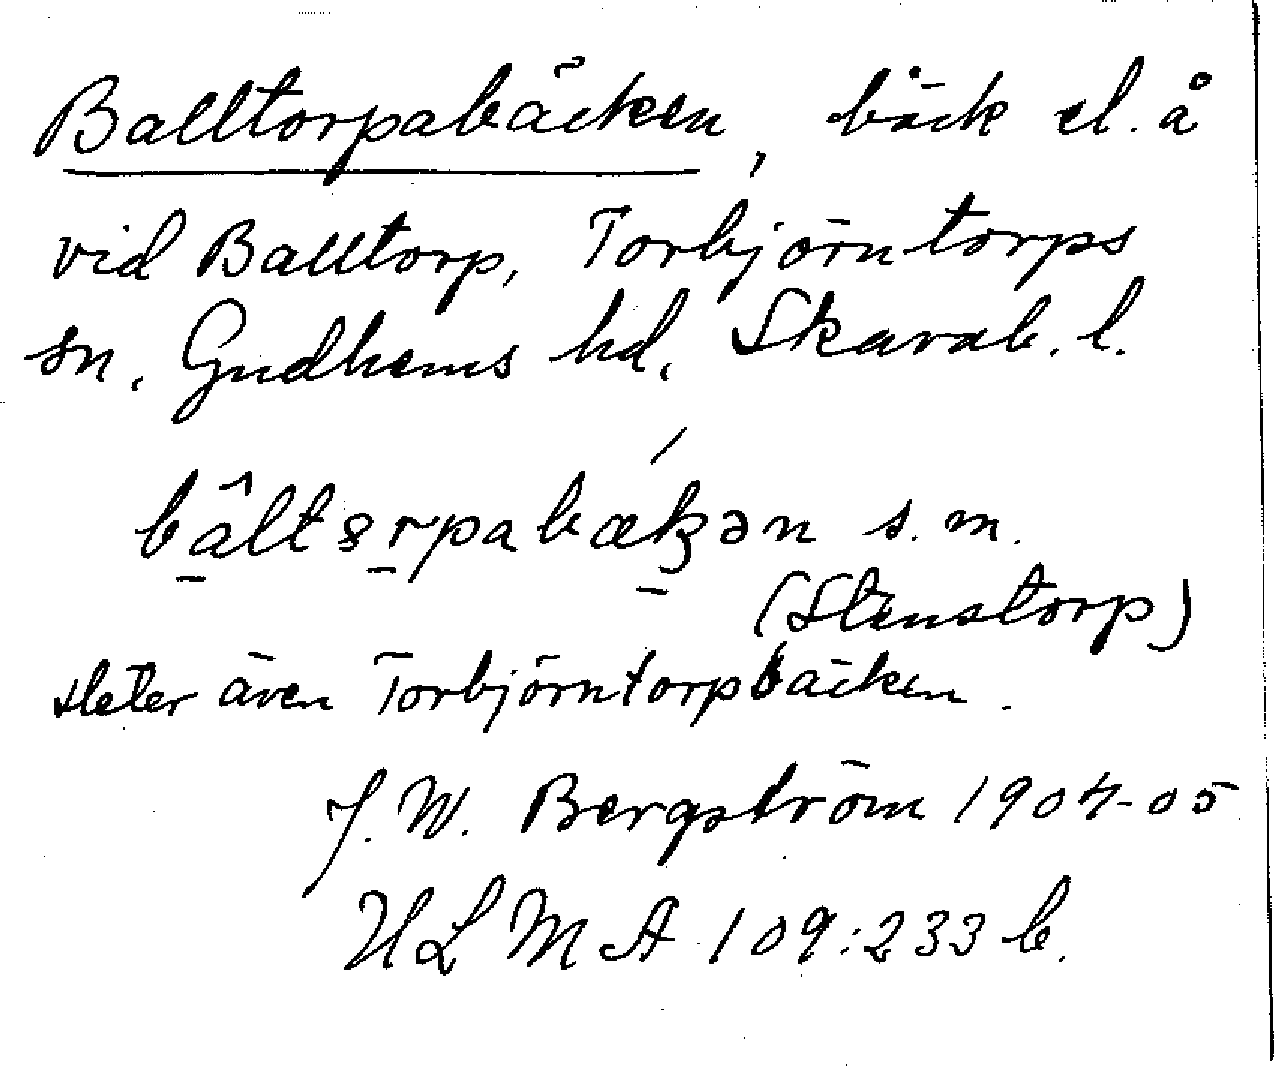 Balltorpabäcken, bäck el. å
vid Balltorp, Torbjörntorps
sn. Gudhems hd, Skarab. l.
s. m.
(Stenstorp)
Heter även Torbjörntorpbäcken.
J. W. Bergström 1904-05
ULMA 109:233 b.